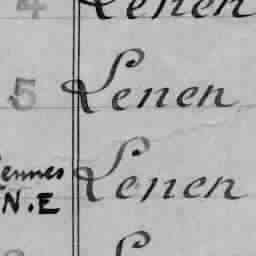 4 Lenen
5 Lenen
ennes Lenen
N.E